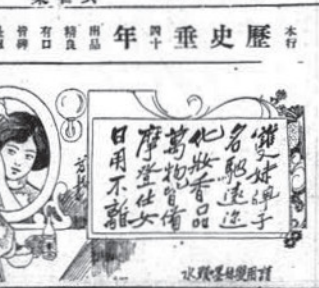 本行歷史垂四十年出品精良有口皆碑
雙妹
名馳遠近
化妝香品
萬物皆備
摩登仕女
日用不離
請用雙妹嘜